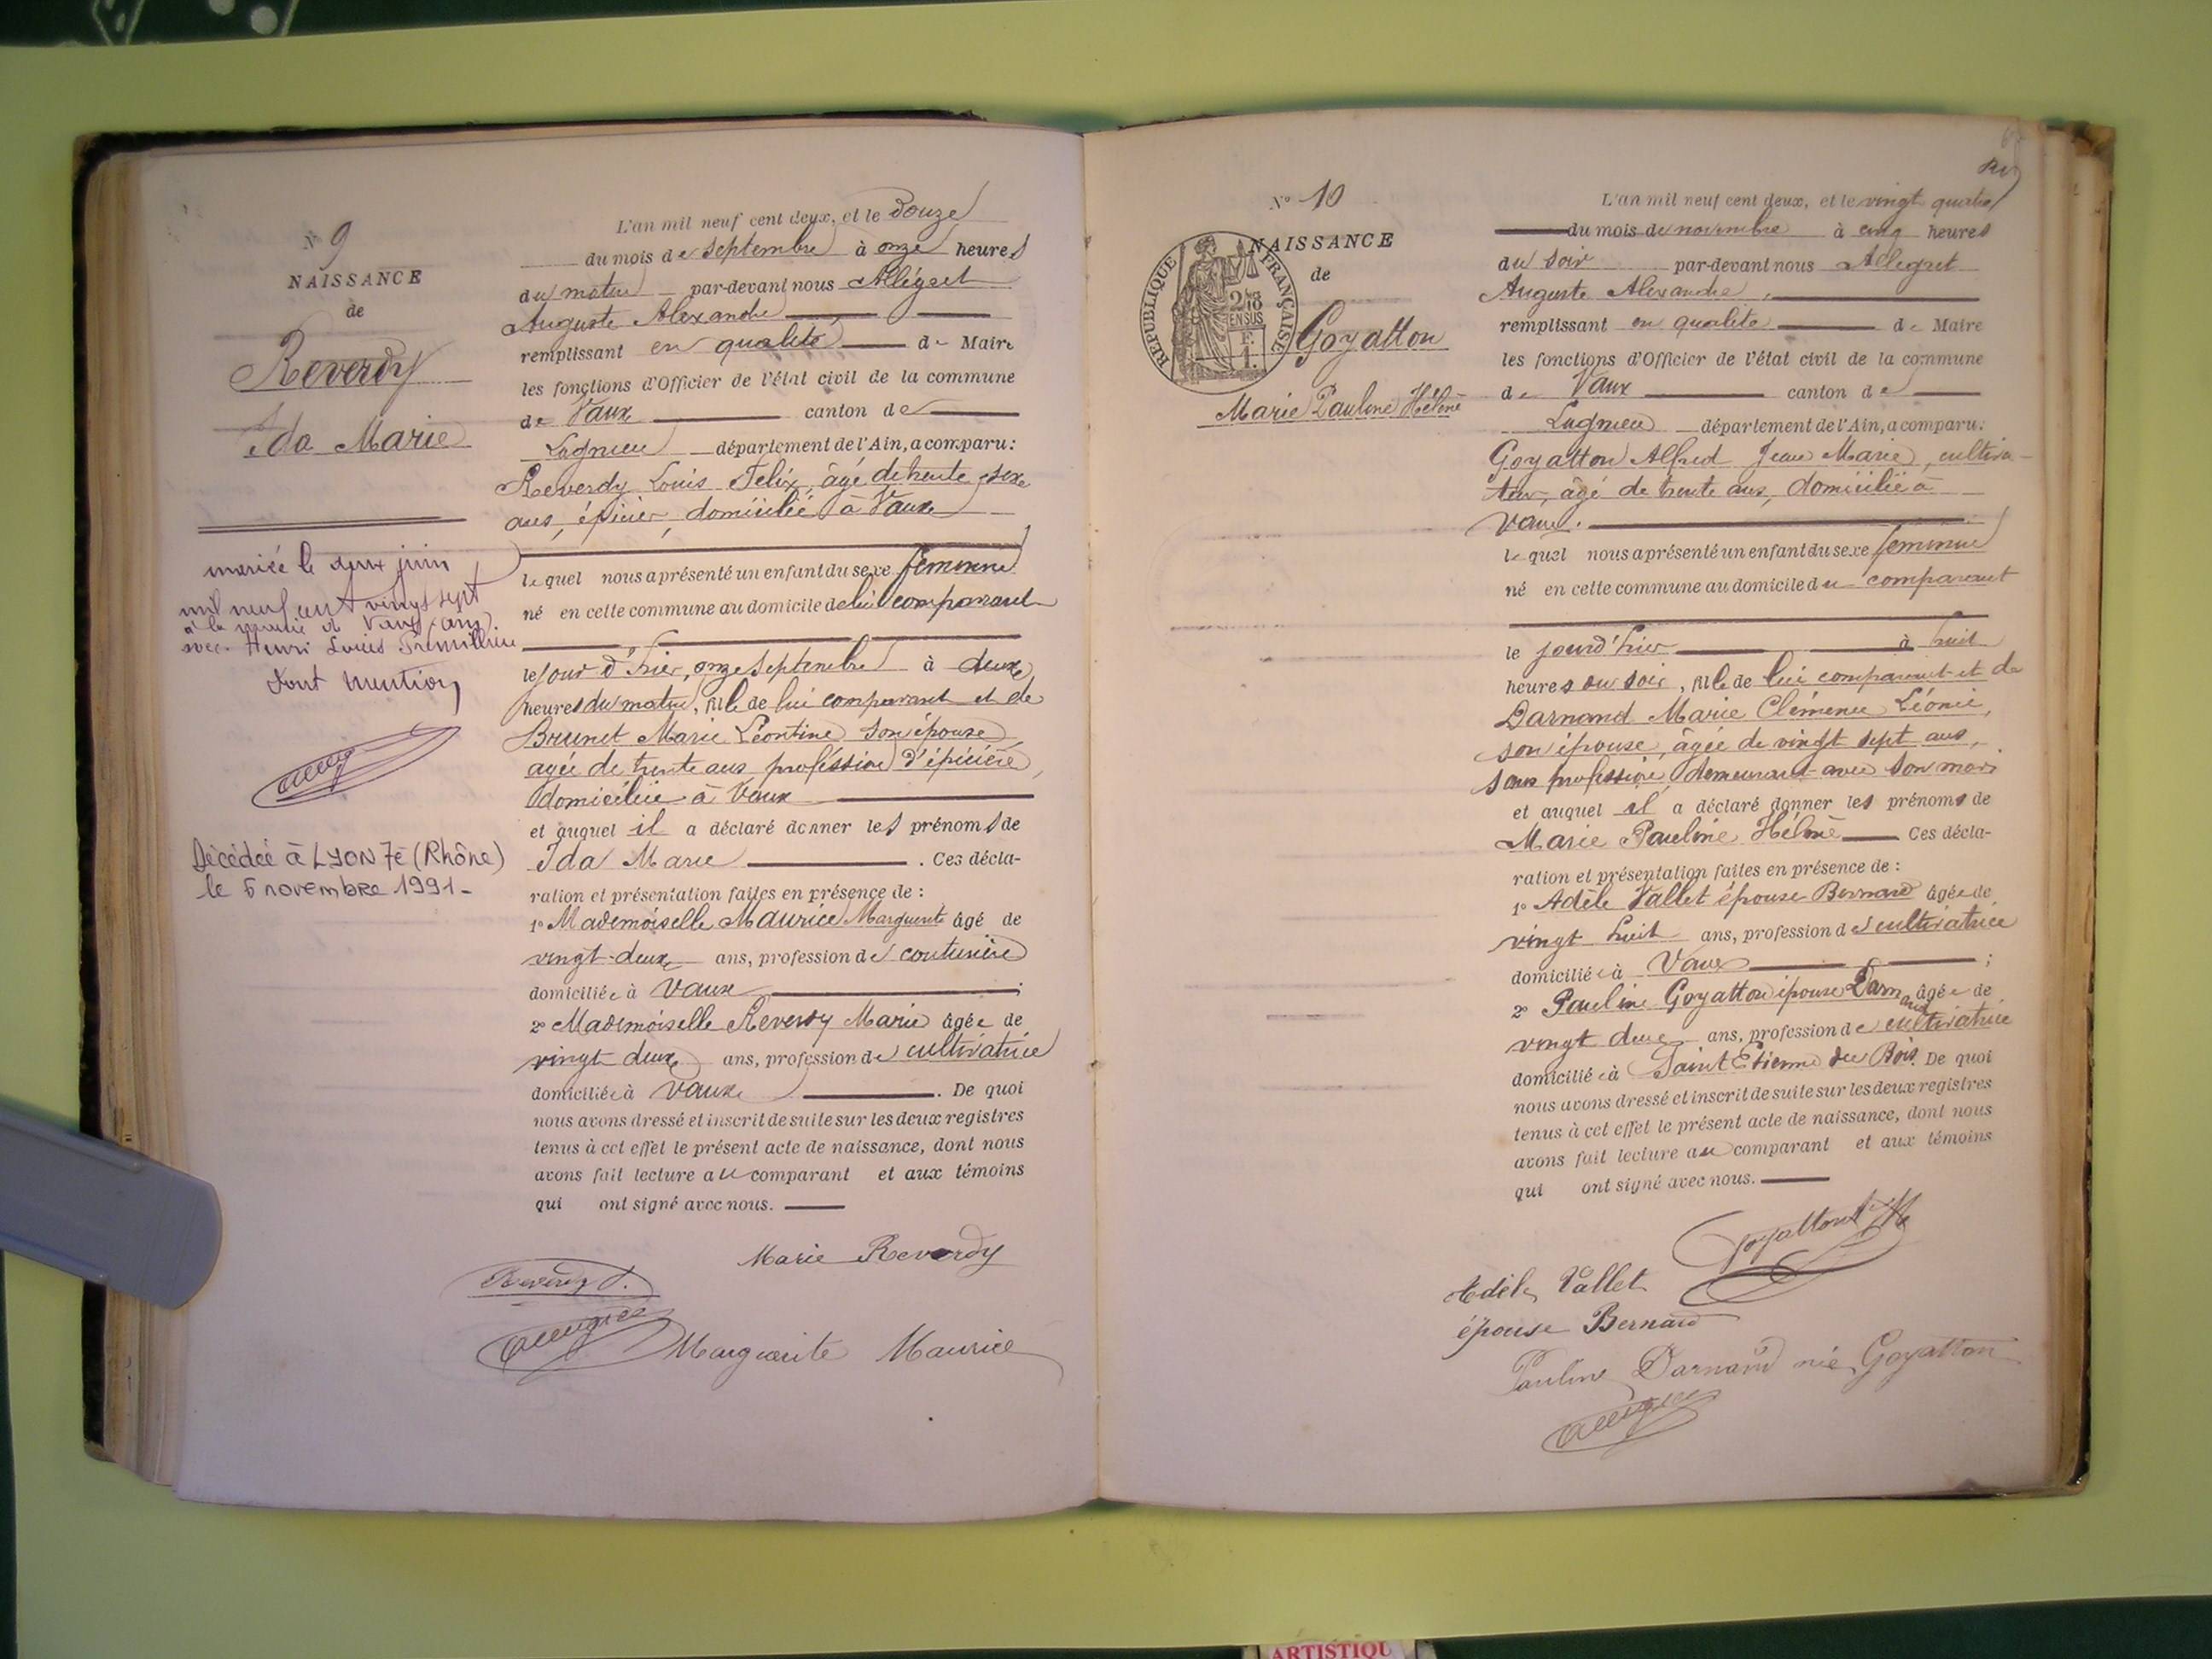 N° 9
NAISSANCE
de
Reverdy
Ida Marie
mariée le deux juin
mil neuf cent vingt sept
à la mairie de Vaux (Ain)
avec Henri Louis
Dont mention
Décédée à LYON 7è (Rhône)
le 6 novembre 1991-
L'an mil neuf cent deux, et le Douze
du mois de septembre à onze heures
du matin par-devant nous Allégret
Auguste Alexandre
remplissant en qualité de Maire
les fonctions d'Officier de l'état civil de la commune
de Vaux canton de
Lagnieu département de l'Ain, a comparu:
Reverdy Louis Félix, âgé de trente six
ans, épicier, domicilié à Vaux
le quel nous a présenté un enfant du sexe féminin
né en cette commune au domicile de lui comparant
le jour d'hier, onze septembre à deux
heures du matin, fille de lui comparant et de
Brunet Marie Léontine son épouse
agée de trente ans profession d'épicière,
domiciliée à Vaux
et auquel il a déclaré donner les prénoms de
Ida Marie . Ces décla-
ration et présentation faites en présence de :
1° Mademoiselle Maurice Marguerite âgé de
vingt-deux ans, profession de couturière
domiciliée à Vaux ;
2° Mademoiselle Reverdy Marie âgée de
vingt deux ans, profession de cultivatrice
domiciliée à Vaux . De quoi
nous avons dressé et inscrit de suite sur les deux registres
tenus à cet effet le présent acte de naissance, dont nous
avons fait lecture au comparant et aux témoins
qui ont signé avec nous.
Marie Reverdy
Reverdy
Marguerite Maurice
N° 10
NAISSANCE
de
RÉPUBLIQUE FRANÇAISE
Goyatton
Marie Pauline Hélène
L'an mil neuf cent deux, et le vingt quatre
du mois de novembre à cinq heures
du soir par-devant nous Allégret
Auguste Alexandre,
remplissant en qualité de Maire
les fonctions d'Officier de l'état civil de la commune
de Vaux canton de
Lagnieu département de l'Ain, a comparu:
Goyatton Alfred Jean Marie, cultiva-
teur, âgé de trente ans, domicilié à
Vaux.
le quel nous a présenté un enfant du sexe féminin
né en cette commune au domicile du comparant
le jourd'hier à huit
heures du soir, fille de lui comparant et de
Darnand Marie Clémence Léonie,
son épouse, âgée de vingt sept ans,
sans profession, demeurant avec son mari
et auquel il a déclaré donner les prénoms de
Marie Pauline Hélène Ces décla-
ration et présentation faites en présence de :
1° Adèle Vallet épouse Bernard âgée de
vingt huit ans, profession de cultivatrice
domiciliée à Vaux ;
2° Pauline Goyatton épouse Darnand âgée de
vingt deux ans, profession de cultivatrice
domiciliée à Saint Etienne du Bois. De quoi
nous avons dressé et inscrit de suite sur les deux registres
tenus à cet effet le présent acte de naissance, dont nous
avons fait lecture au comparant et aux témoins
qui ont signé avec nous.
Goyatton
Adèle Vallet
épouse Bernard
Pauline Darnand née Goyatton
ARTISTIQU